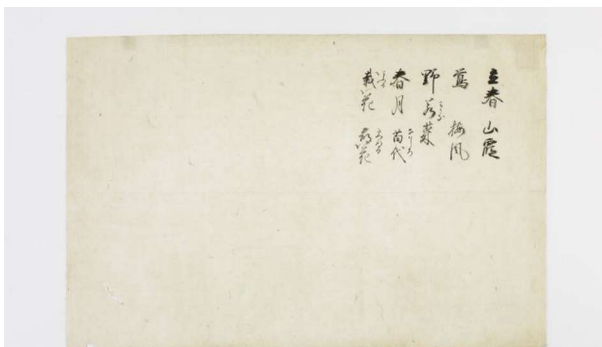 立春 山霞
鶯 梅風
野若菜
春月 苗代
栽花 尋花